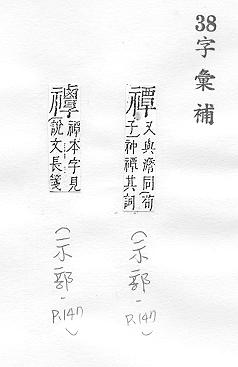 38字彙補
禫
又與澹同荀
子神禫其詞
(示部 - P.147)
禫本字見
說文長箋
(示部 - P.147)